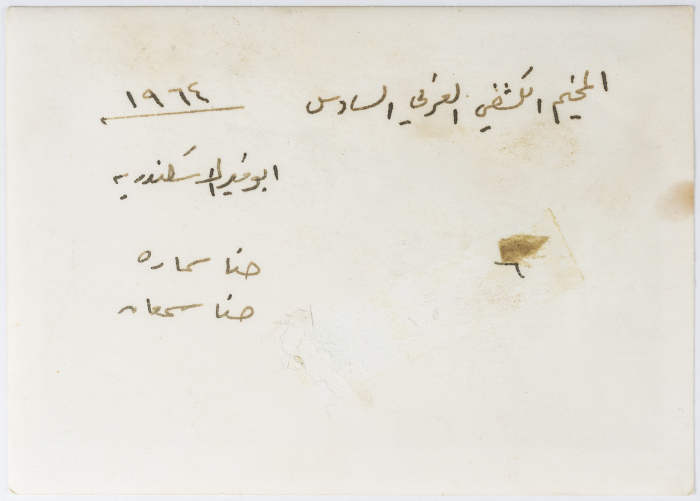 المخيم الكشفي العربي السادس ١٩٦٤
ابوقير الاسكندريه
٦
حنا سماره
حنا سمعان